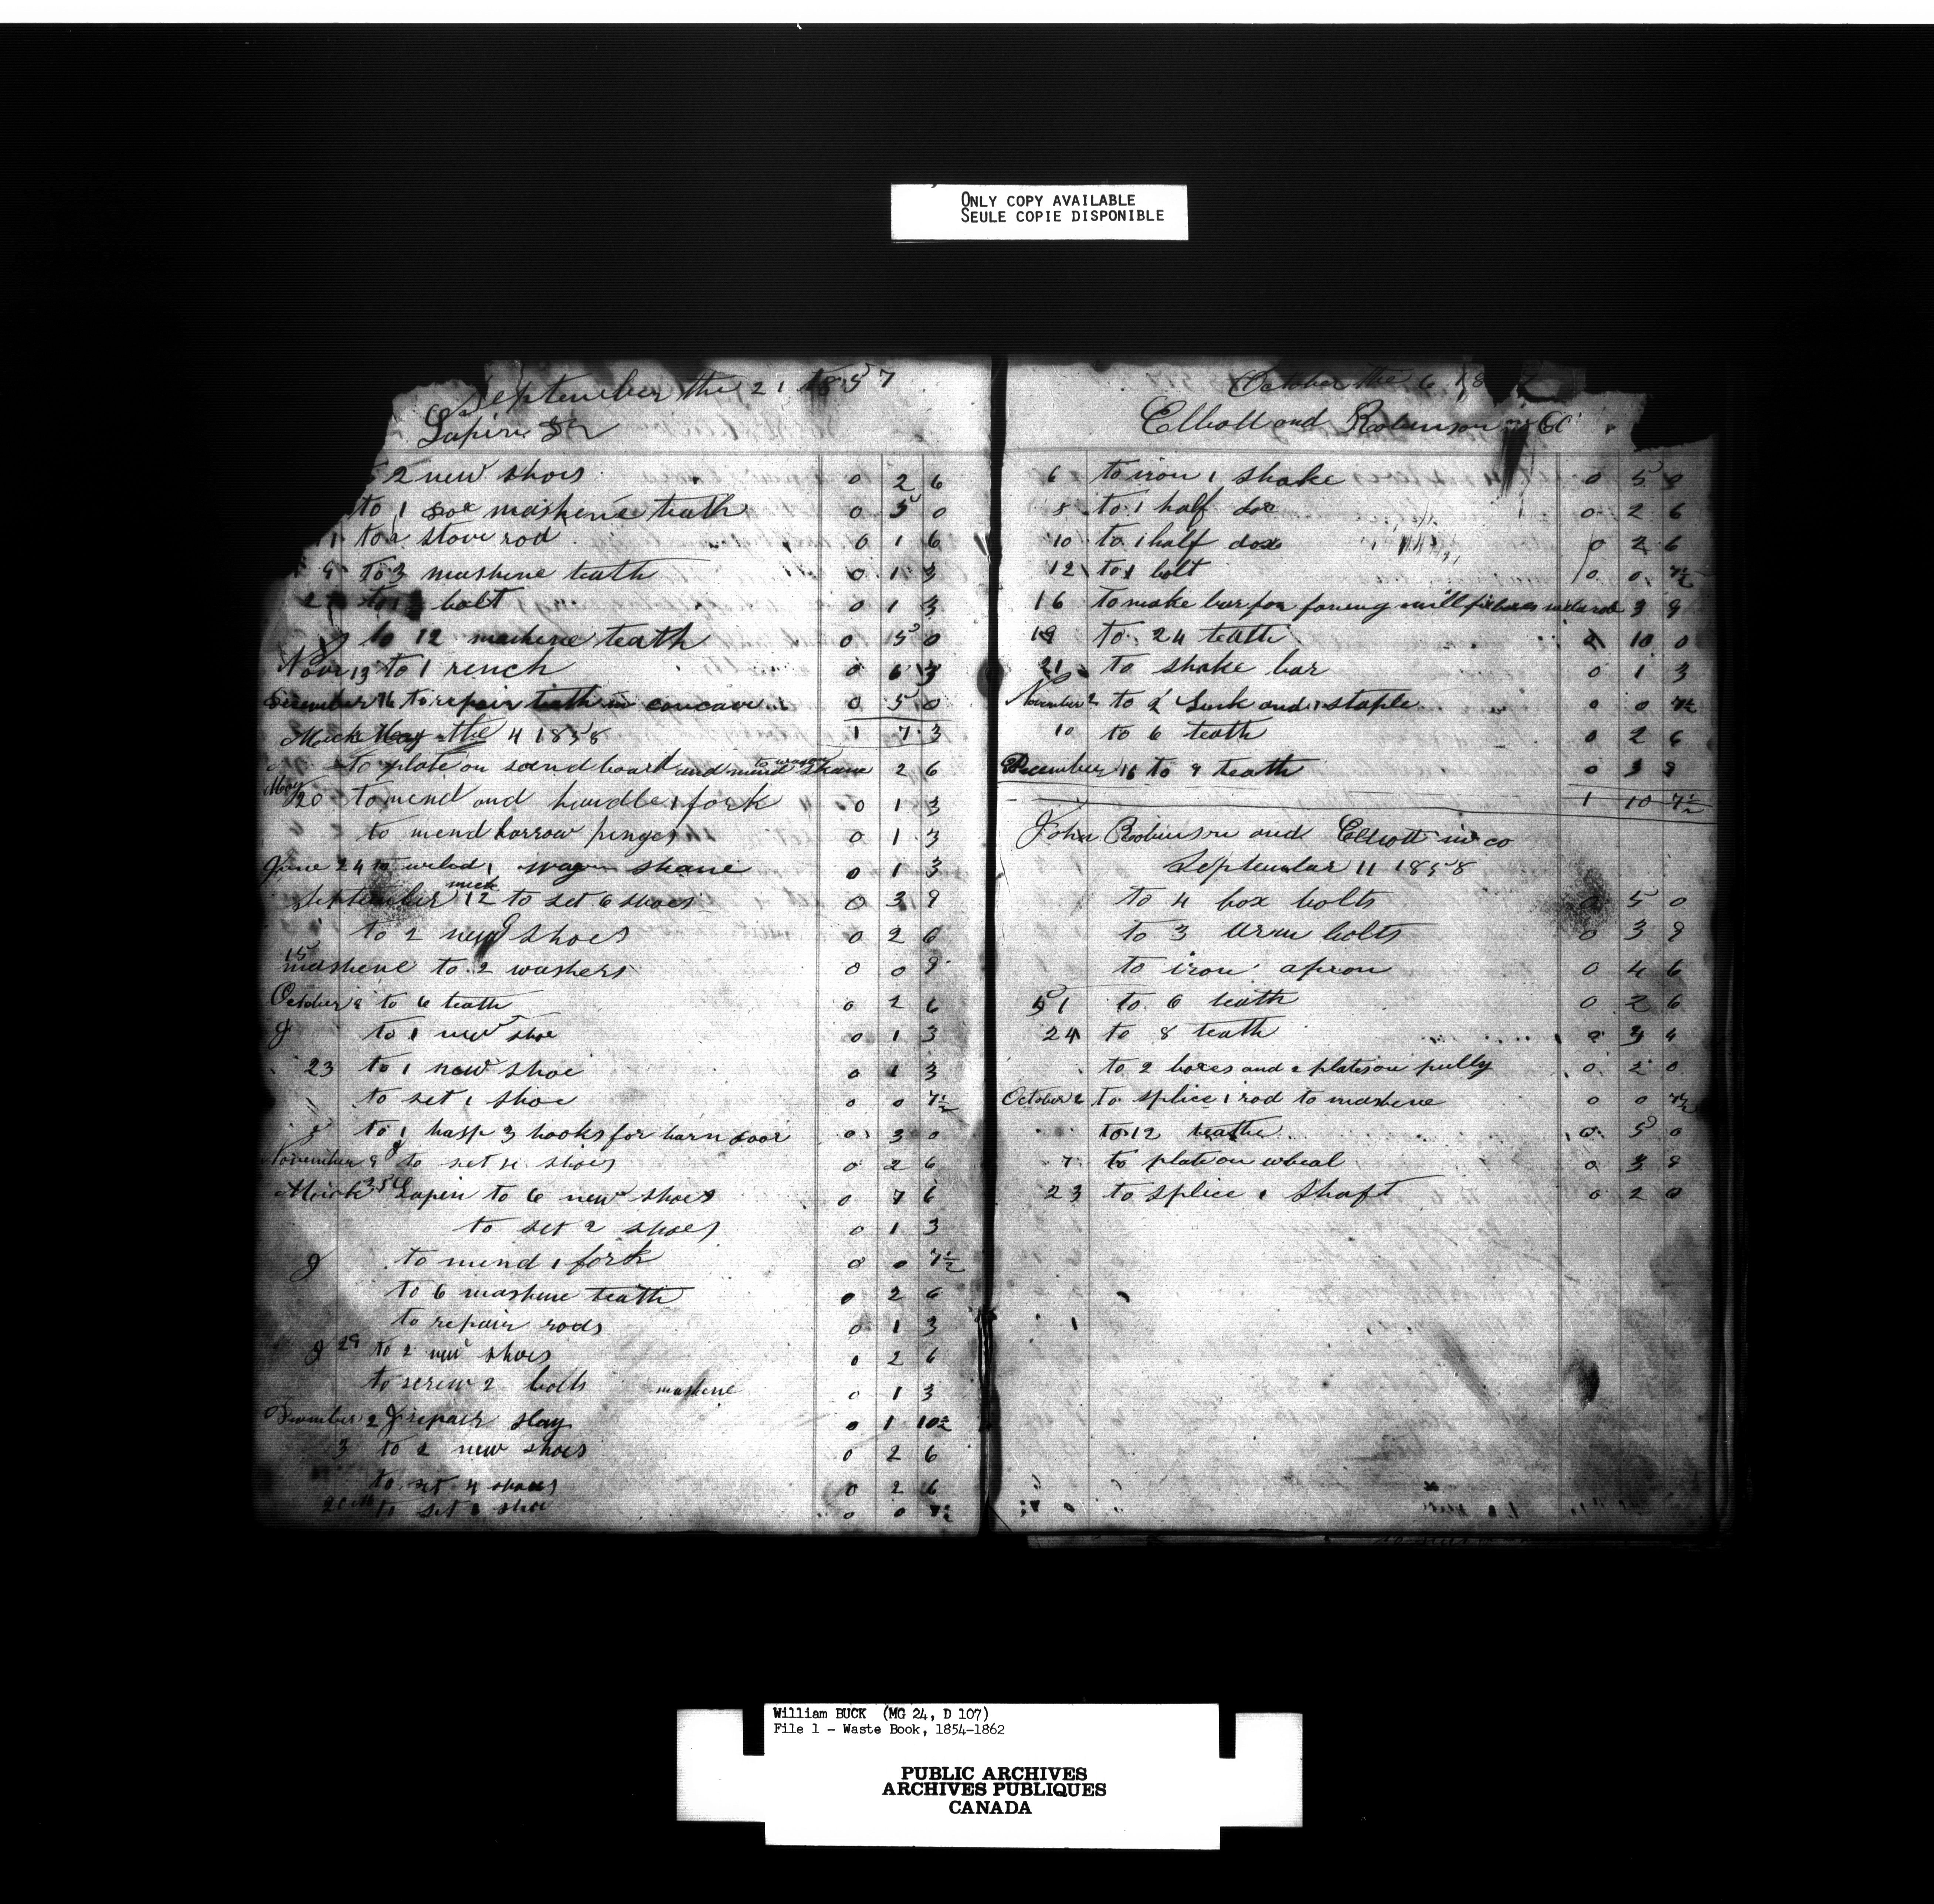 ONLY COPY AVAILABLE
SEULE COPIE DISPONIBLE
September the 21 1857
Lapin
2 new shoes 0 2 6
to 1 dox mashene teath 0 5 0
1 to a stove rod 0 1 6
9 to 3 mashene teath 0 1 3
to bolt 0 1 3
to 12 mashene teath 0 5 0
Nov 13 to 1 rench 0 6 3
December 16 to repair teath in concave 0 5 0
1 7 3
Mick May the 4 1858
to plate on sand board and mend to wagon 2 6
May 20 to mend and handle 1 fork 0 1 3
to mend harrow 0 1 3
June 24 to weled 1 wagon 0 1 3
September mick 12 to set 6 shoes 0 3 9
to 2 new shoes 0 2 6
15 mashene to 2 washers 0 0 9
October 9 to 6 teath 0 2 6
J to 1 new shoe 0 1 3
23 to 1 new shoe 0 1 3
to set 1 shoe 0 0 7½
to 1 hasp 3 hooks for barn door 0 3 0
November 9 to set 4 shoes 0 2 6
Lapin to 6 new shoes 0 7 6
to set 2 shoes 0 1 3
J to mend 1 fork 0 0 7½
to 6 mashene teath 0 2 6
to repair rods 0 1 3
J 29 to 2 new shoes 0 2 6
to screw 2 bolts mashene 0 1 3
December 2 J repair slay 0 1 10½
3 to 2 new shoes 0 2 6
to set 4 shoes 0 2 6
20 to set 1 shoe 0 0 7½
October the 6 18
Elliott and Robinson in Co
6 to iron 1 shake 0 5 0
8 to 1 half dox 0 2 6
10 to 1 half dox 0 2 6
12 to 1 bolt 0 0 7½
16 to make bar for 3 9
19 to 24 teath 0 10 0
21 to shake bar 0 1 3
November 2 to 2 and 1 staple 0 0 7½
10 to 6 teath 0 2 6
December 16 to 9 teath 0 3 9
1 10 7½
John Robinson and Elliott in co
September 11 1858
to 4 box bolts 0 5 0
to 3 arm bolts 0 3 9
to iron apron 0 4 6
to 6 teath 0 2 6
24 to 8 teath 0 3 4
to 2 boxes and 2 plates on pully 0 2 0
October 2 to splice 1 rod to mashene 0 0 7½
to 12 teathe 0 5 0
7 to plate on wheal 0 3 9
23 to splice 1 shaft 0 2 0
William BUCK (MG 24, D 107)
File 1 - Waste Book, 1854-1862
PUBLIC ARCHIVES
ARCHIVES PUBLIQUES
CANADA